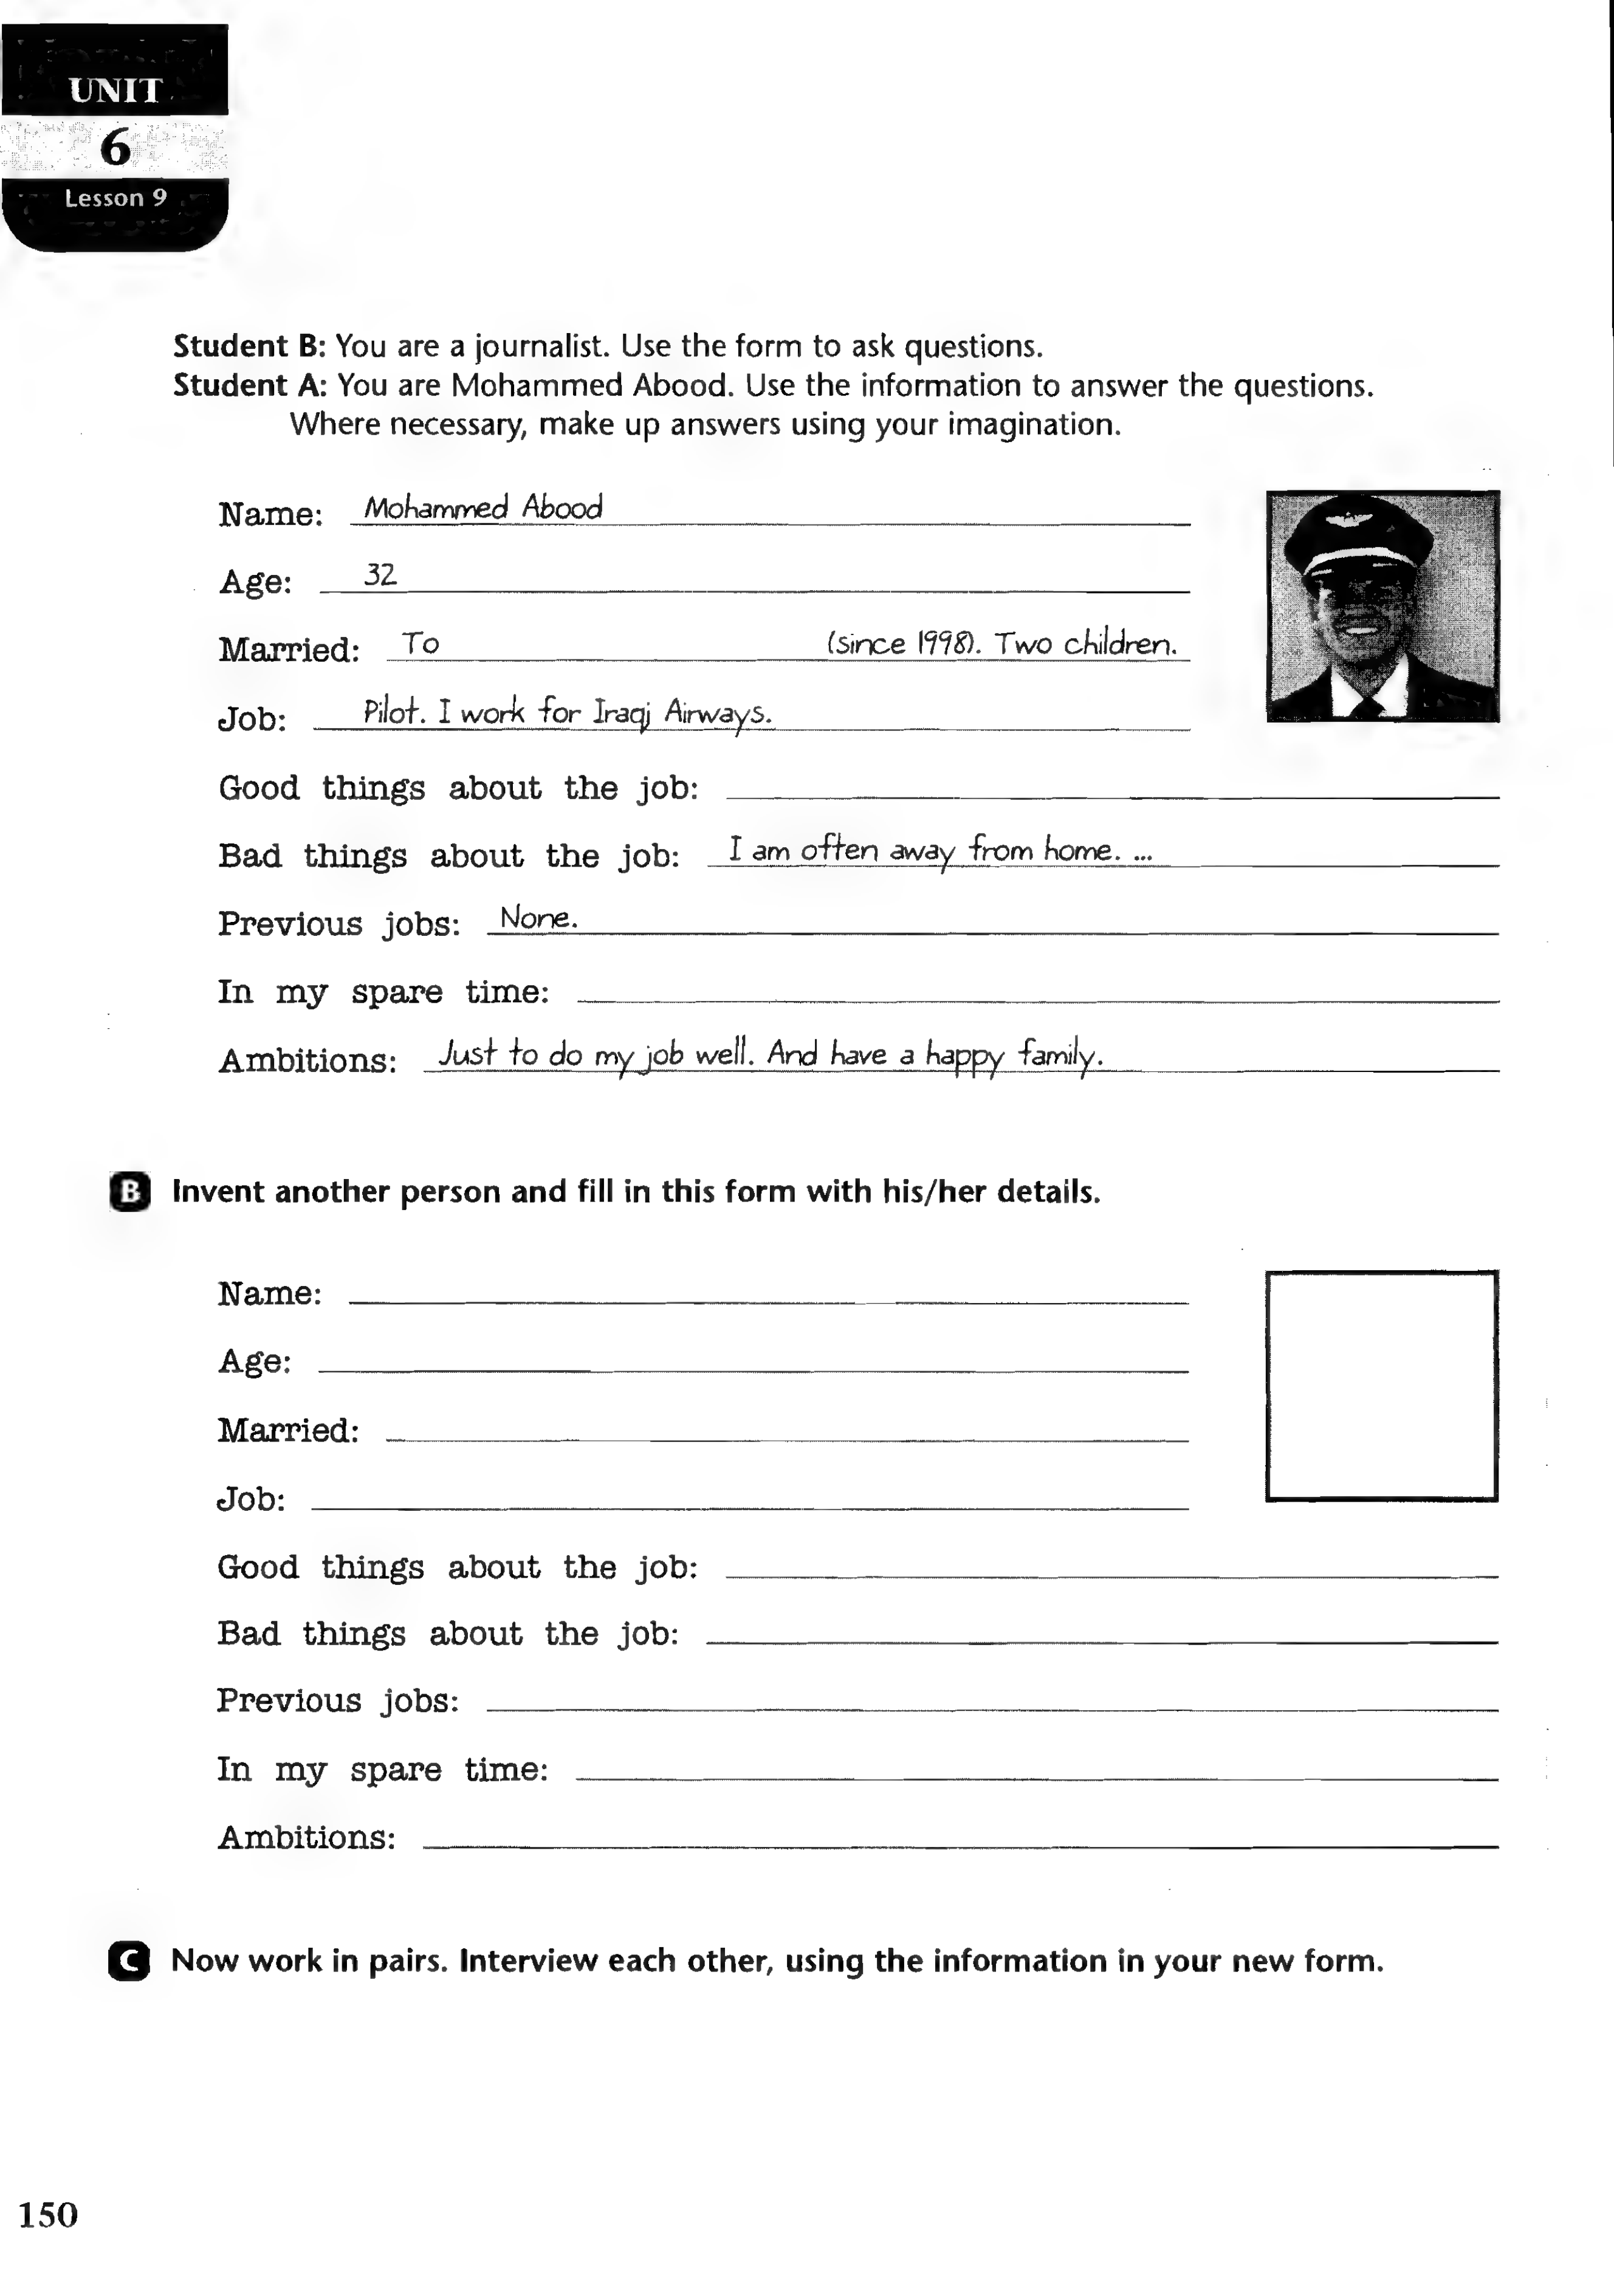 UNIT
6
Lesson 9
Student B: You are a journalist. Use the form to ask questions.
Student A: You are Mohammed Abood. Use the information to answer the questions.
Where necessary, make up answers using your imagination.
Name: Mohammed Abood
Age: 32
Married: To (since 1998). Two children.
Job: Pilot. I work for Iraqi Airways.
Good things about the job:
Bad things about the job: I am often away from home. ...
Previous jobs: None.
In my spare time:
Ambitions: Just to do my job well. And have a happy family.
B Invent another person and fill in this form with his/her details.
Name:
Age:
Married:
Job:
Good things about the job:
Bad things about the job:
Previous jobs:
In my spare time:
Ambitions:
C Now work in pairs. Interview each other, using the information in your new form.
150